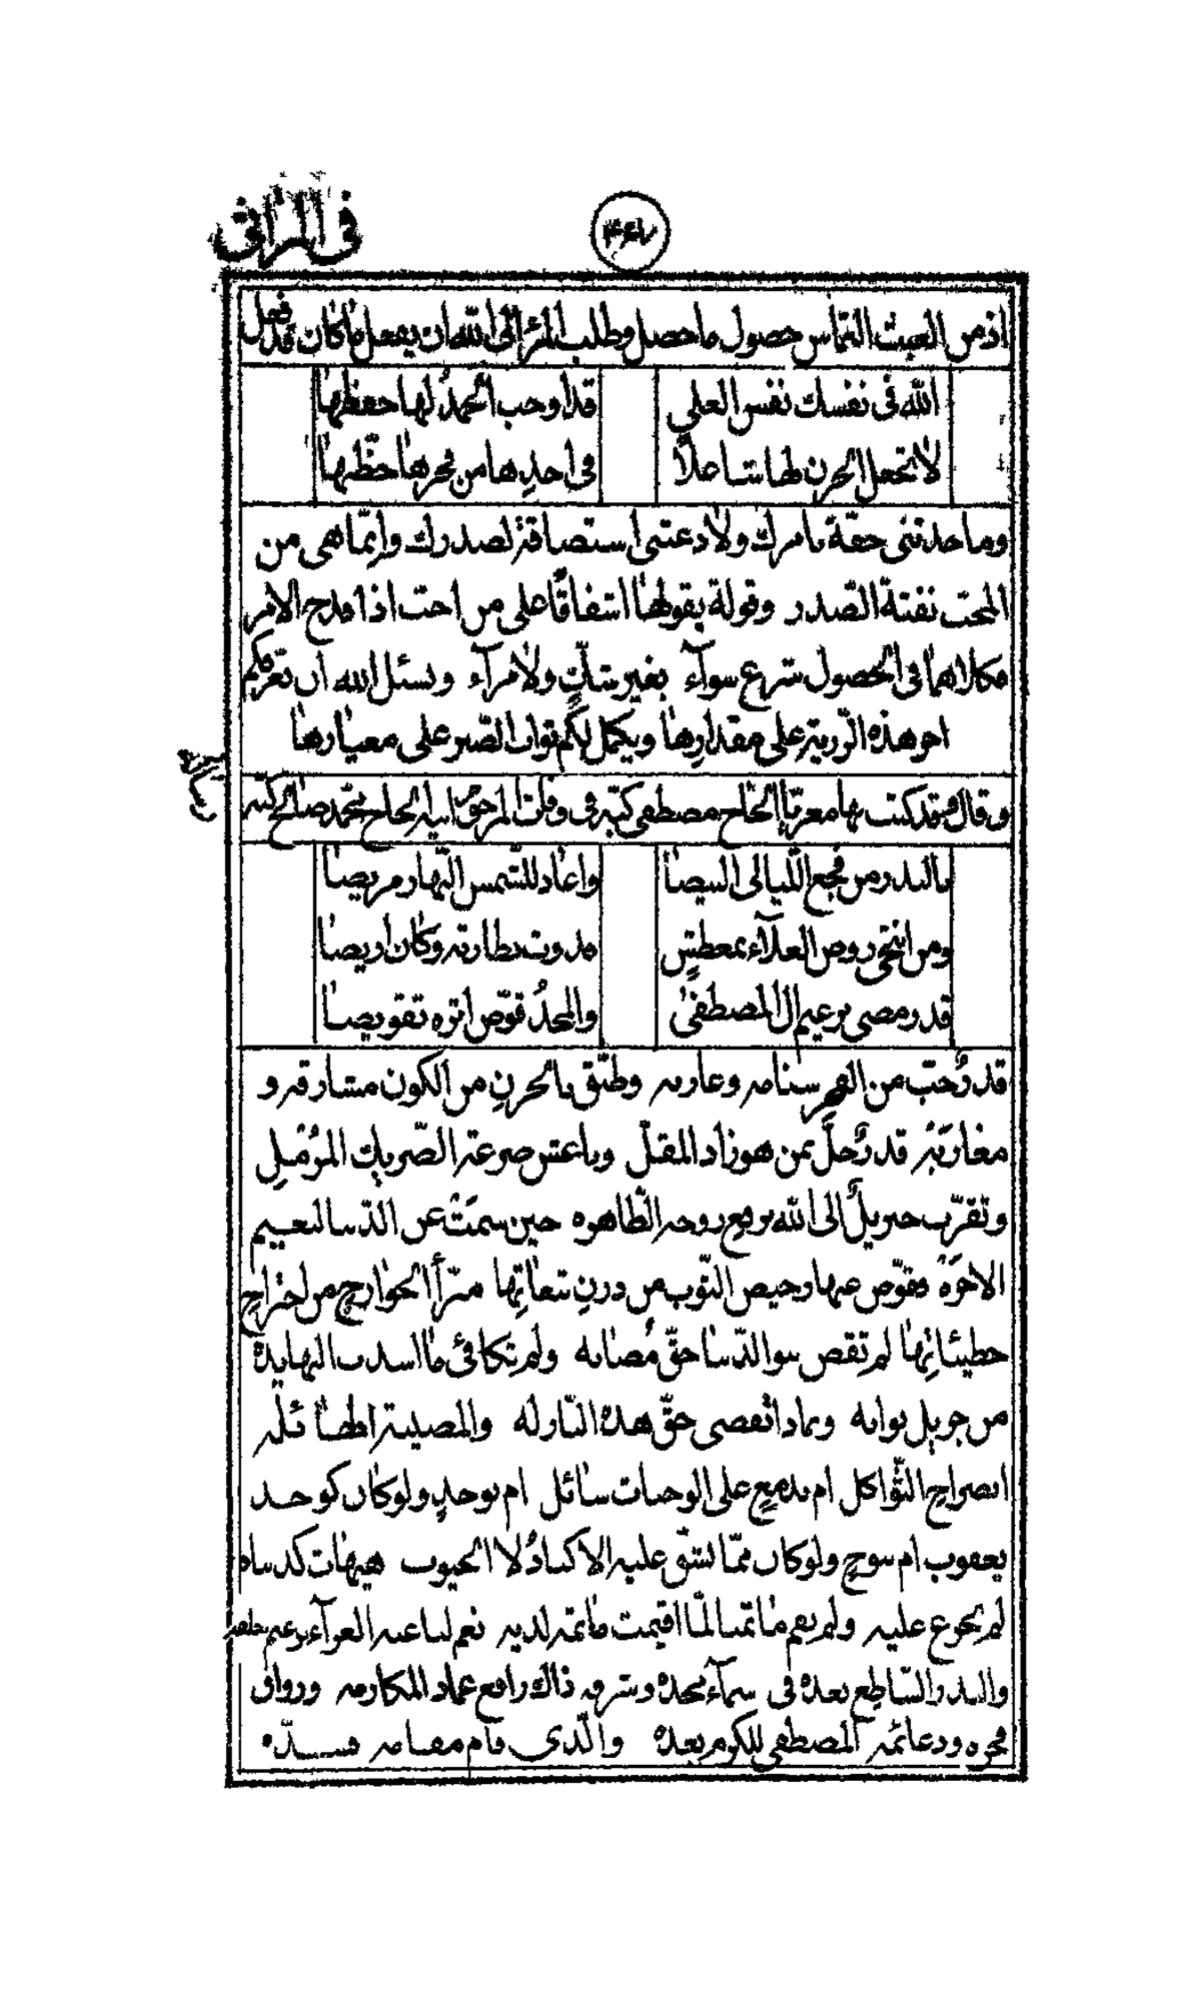 في المراثي
اذ من العبث التماس حصول ما حصل وطلب المرء الى الله ان يفعل ما كان قد فعل
الله في نفسك نفس العلى قد اوجب الحمد لها حفظها
لا تجعل الحزن لها شاغلاً في اخذها من فخرها حظّها
وما حدتني خفة بامرك ولا دعتني استضاقة لصدرك وانّما هي من
المحبّ نفثة الصّدر وقولة يقولها اشفاقًا على من احبّ اذا فدح الامر
فكلاهما في الحصول شرع سوآء بغير شكّ ولا مرآء ونسئل الله ان
اجر هذه الرّزية على مقدارها ويكمل لكم ثواب الصّبر على معيارها
وقال وقد كتب بها معزّيا الحاج مصطفى كبّه في وفات المرحوم ابيه الحاج محمّد صالح كبّه
بالبدر من فجع اللّيالي البيضا واعاد للشّمس النّهار مريضا
ومن انتحى روض العلآء بمعطشٍ فذوت نظارته وكان اريضا
قدر مضى بزعيم ال المصطفى والمجدُ قوّض اثره تقويضا
قد جبّ من الفخر سنامه وغاربه وطبّق بالحزنِ من الكون مشارقه و
مغاربَهُ قد رُحلَّ بمن هو زاد المقلّ وباعش صرعة الضّريك المرمّلِ
وتقرّب جبريلٌ الى الله برفع روحه الطّاهره حين سمَتْ عن الدّنيا لنعيم
الاخرَه فقوّض عنها رحيض الثّوب من درنِ تبعاتِها مبرّأ الجوارحِ من اجتراحِ
خطيئاتِها لم تقض بنو الدّنيا حقّ مُصابه ولم تكافئ ما اسدت اليها يدهُ
من جزيل ثوابه وبماذا تقضي حقّ هذه النّازله والمصيبة
ابصراخِ الثّواكل ام بدمعٍ على الوجنات سائل ام بوجدٍ ولو كان كوجد
يعقوب ام بنوحٍ ولو كان ممّا تشقّ عليه الاكبادُ لا الجيوب هيهات
لم نجزع عليه ولم يقم ماتمنا لمّا اقيمت ماتمه لديه نعم لنا عنه العزآء بزعيم
والبدر السّاطع بعده في سمآء مجده وشرفه ذاك رافع عماد المكارمه ورواق
فخره ودعائمه المصطفى للكرم بعده والّذي قام مقامه